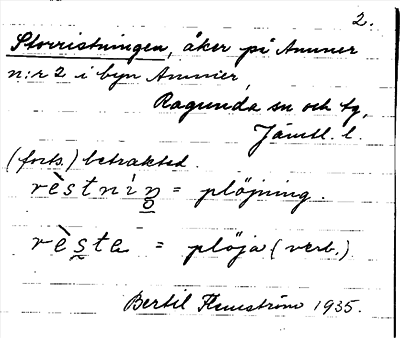 2.
Storristningen, åker på Ammer
n:r 2 i byn Ammer,
Ragunda sn och tg,
Jämtl. l.
(forts.) betraktad.
rèstnìn̥ = plöjning.
rèṣte = plöja (verb.)
Bertil Flemström 1935.